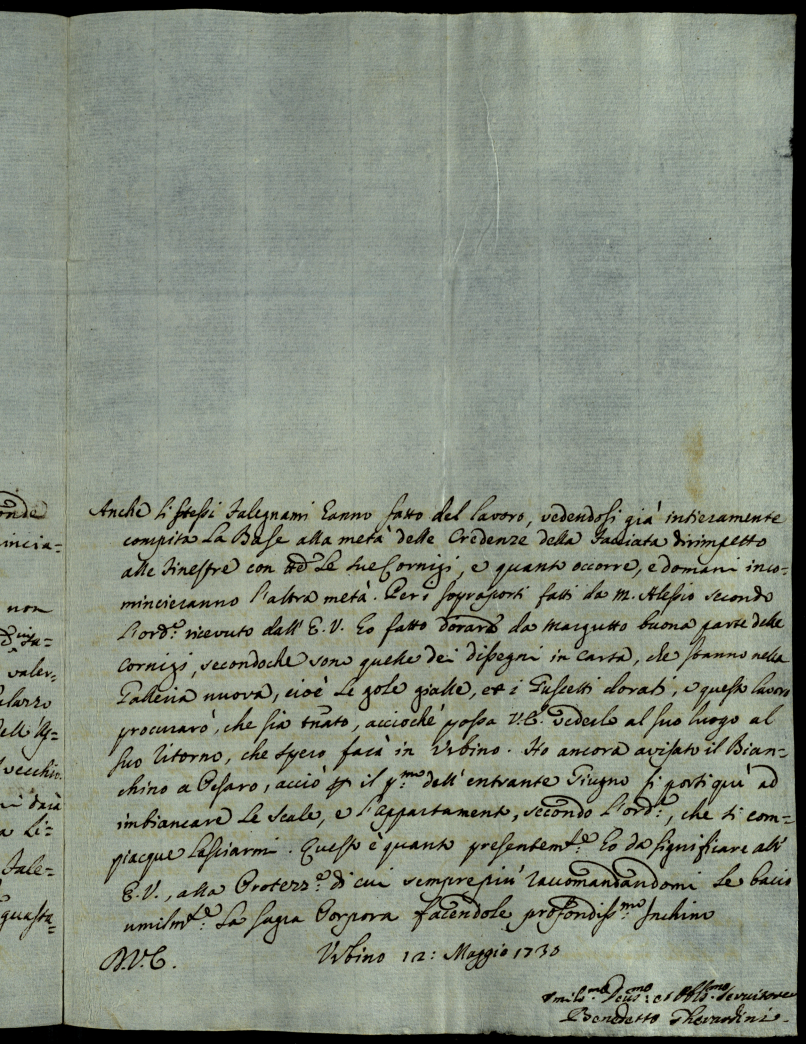 onde
incia=
non
valer=
vecchio
darà
a Li=
Fale=
questa=
Anche li stessi Falegnami hanno fatto del lavoro, vedendosi già intieramente
compita la Base alla metà delle Credenze della Facciata dirimpetto
alle Finestre con tte le sue Cornigi, e quanto occorre, e domani inco=
mincieranno l'altra metà. Per i sopraporti fatti da m. Alessio secondo
l'ord.e ricevuto dall'E.V. ho fatto dorare da Margutto buona parte delle
Cornigi, secondoche sono quelle dei disegni in carta, che stanno nella
Galleria nuova, cioè le gole gialle, et i Guscetti dorati, e questo lavoro
procurarò, che sia tirato, acciochè possa V.E. vederlo al suo luogo al
suo ritorno, che spero farà in Urbino. Ho ancora avisato il Bian=
chino a Pesaro, acciò il p.mo dell'entrante Giugno si porti quì ad
imbiancare le scale, e l'appartamento, secondo l'ord.e, che si com=
piacque lasciarmi. Questo è quanto presentem.te ho da significare all'
E.V., alla Protezz.e di cui semprepiù raccomandandomi le bacio
umilm.te la sagra Porpora facendole profondiss.mo Inchino
D.V.E. Urbino 12: Maggio 1730
Umilis.mo Deus.mo et Obl.mo Servitore
Benedetto Gherardini